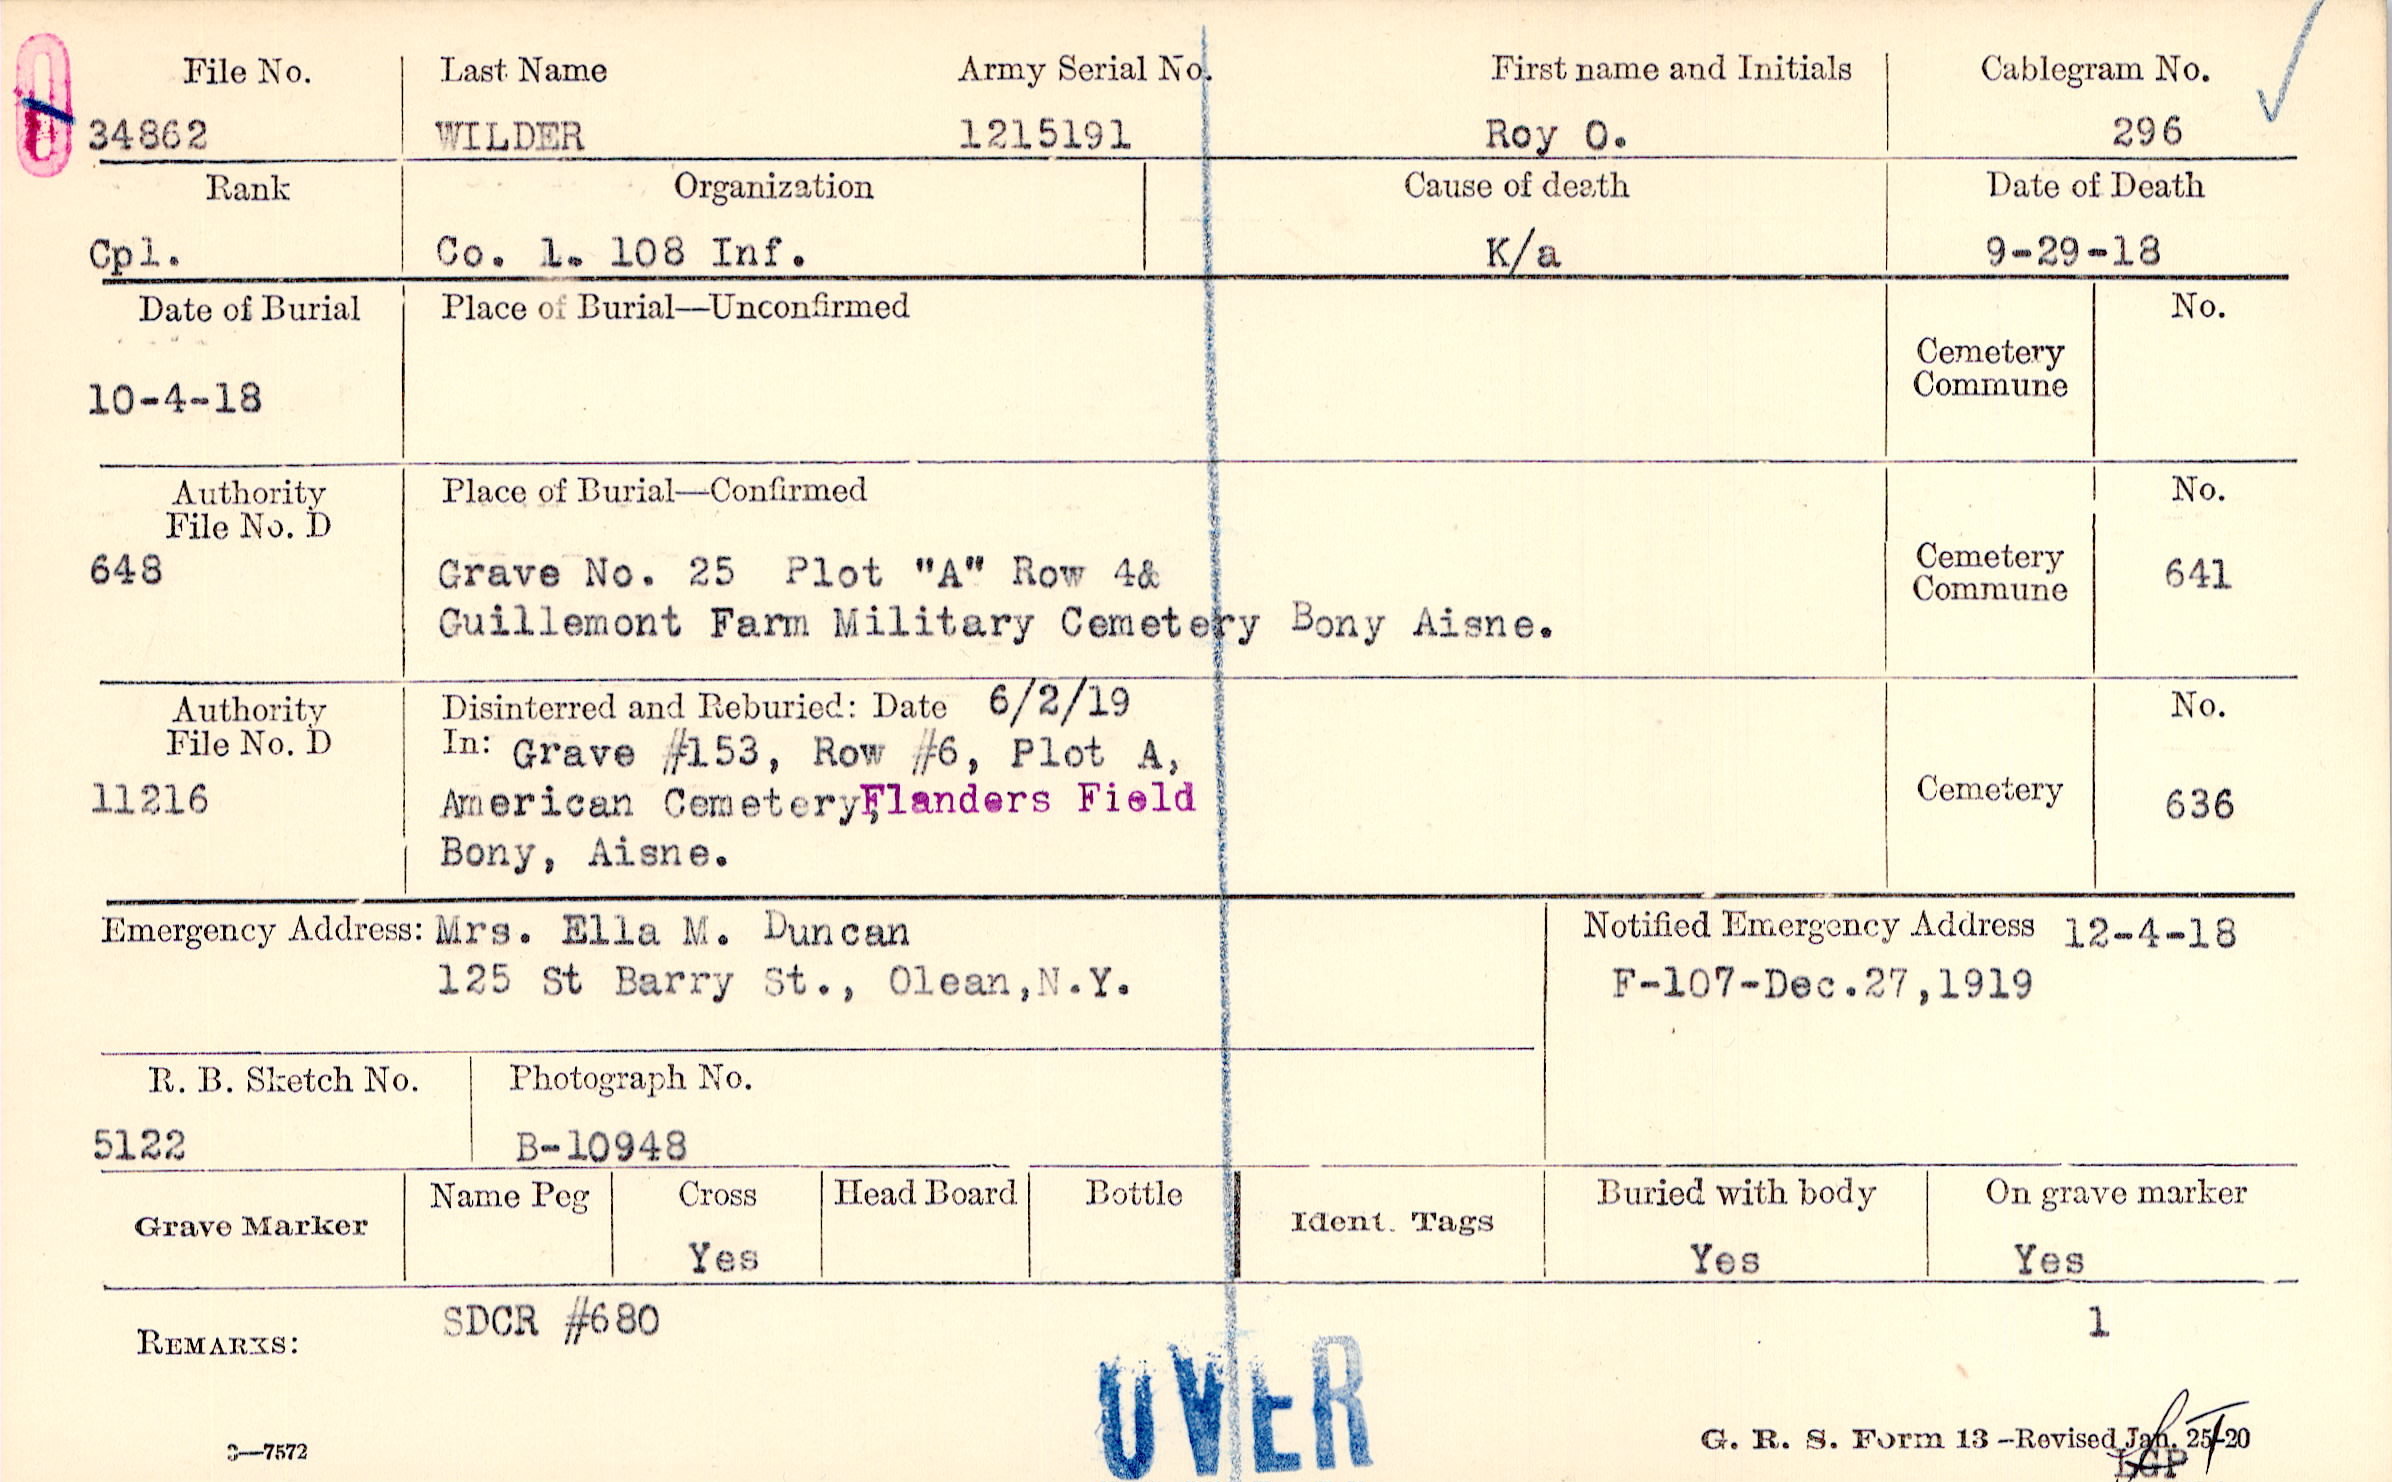 File No. Last Name Army Serial No. First name and Initials Cablegram No.
34862 WILDER 1215191 Roy O. 296
Rank Organization Cause of death Date of Death
Cpl. Co. 1. 108 Inf. K/a 9-29-18
Date of Burial Place of Burial—Unconfirmed No.
Cemetery
Commune
10-4-18
Authority Place of Burial—Confirmed No.
File No. D
648 Grave No. 25 Plot "A" Row 4& Cemetery 641
Commune
Guillemont Farm Military Cemetery Bony Aisne.
Authority Disinterred and Reburied: Date 6/2/19 No.
File No. D In: Grave #153, Row #6, Plot A,
11216 American Cemetery, Flanders Field Cemetery 636
Bony, Aisne.
Emergency Address: Mrs. Ella M. Duncan Notified Emergency Address 12-4-18
125 St Barry St., Olean,N.Y. F-107-Dec.27,1919
R. B. Sketch No. Photograph No.
5122 B-10948
Grave Marker Name Peg Cross Head Board Bottle Ident. Tags Buried with body On grave marker
Yes Yes Yes
REMARKS: SDCR #680 1
OVER
3—7572 G. R. S. Form 13 -Revised Jan. 25-20